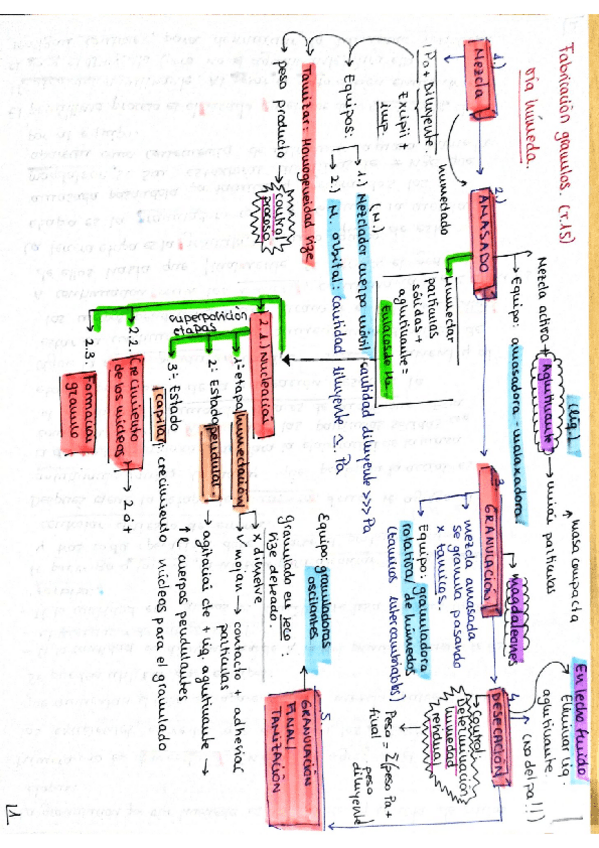 Fabricación gránulos. (T.15)
vía húmeda.
1)
Mezcla
1 Pa + Diluyente.
Excipit +
imp.
humectado
Equipos:
1.) Mezclador cuerpo móvil: cantidad diluyente >>> Pa
(M.)
2.) M. orbital: cantidad diluyente ≃ Pa
Tamizar: Homogeneidad size
peso producto → control
proceso
2)
AMASADO
Mezcla activa + Aglutinante → unir partículas
(líq.)
masa compacta
Equipo: amasadora - malaxadora
Humectar
partículas
sólidas +
aglutinante =
Enlaces de H2
superposición
etapas
2.1) Nucleación
1ª etapa humectación
✓ mojan → contacto + adhesión
partículas
x disuelve
2ª Estado pendular.
→ agitación cte + líq. aglutinante →
cuerpos pendulares
3ª Estado
capilar: crecimiento núcleos para el granulado
2.2. Crecimiento
de los núcleos → 2 ó +
2.3. Formación
gránulo
3.
GRANULACIÓN
magdaleones
mezcla amasada
se granula pasando
x tamices.
Equipo: granuladora
rotativa / de húmedos
(tamices intercambiables)
4.
DESECACIÓN
En lecho fluido
Eliminar líq.
aglutinante.
(no del pa!!)
control
Determinación
humedad
residual
Peso = Σ(peso Pa +
final peso
diluyente)
5.
GRANULACIÓN
FINAL /
TAMIZACIÓN
equipo: granuladoras
oscilantes
granulado en seco:
size deseado.
1